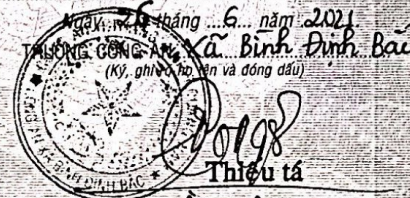 Ngày 26 tháng ...6... năm 2021
TRƯỞNG CÔNG AN Xã Bình Định Bắc
(Ký, ghi rõ họ tên và đóng dấu)
Thiếu tá
XÃ BÌNH ĐỊNH BẮC